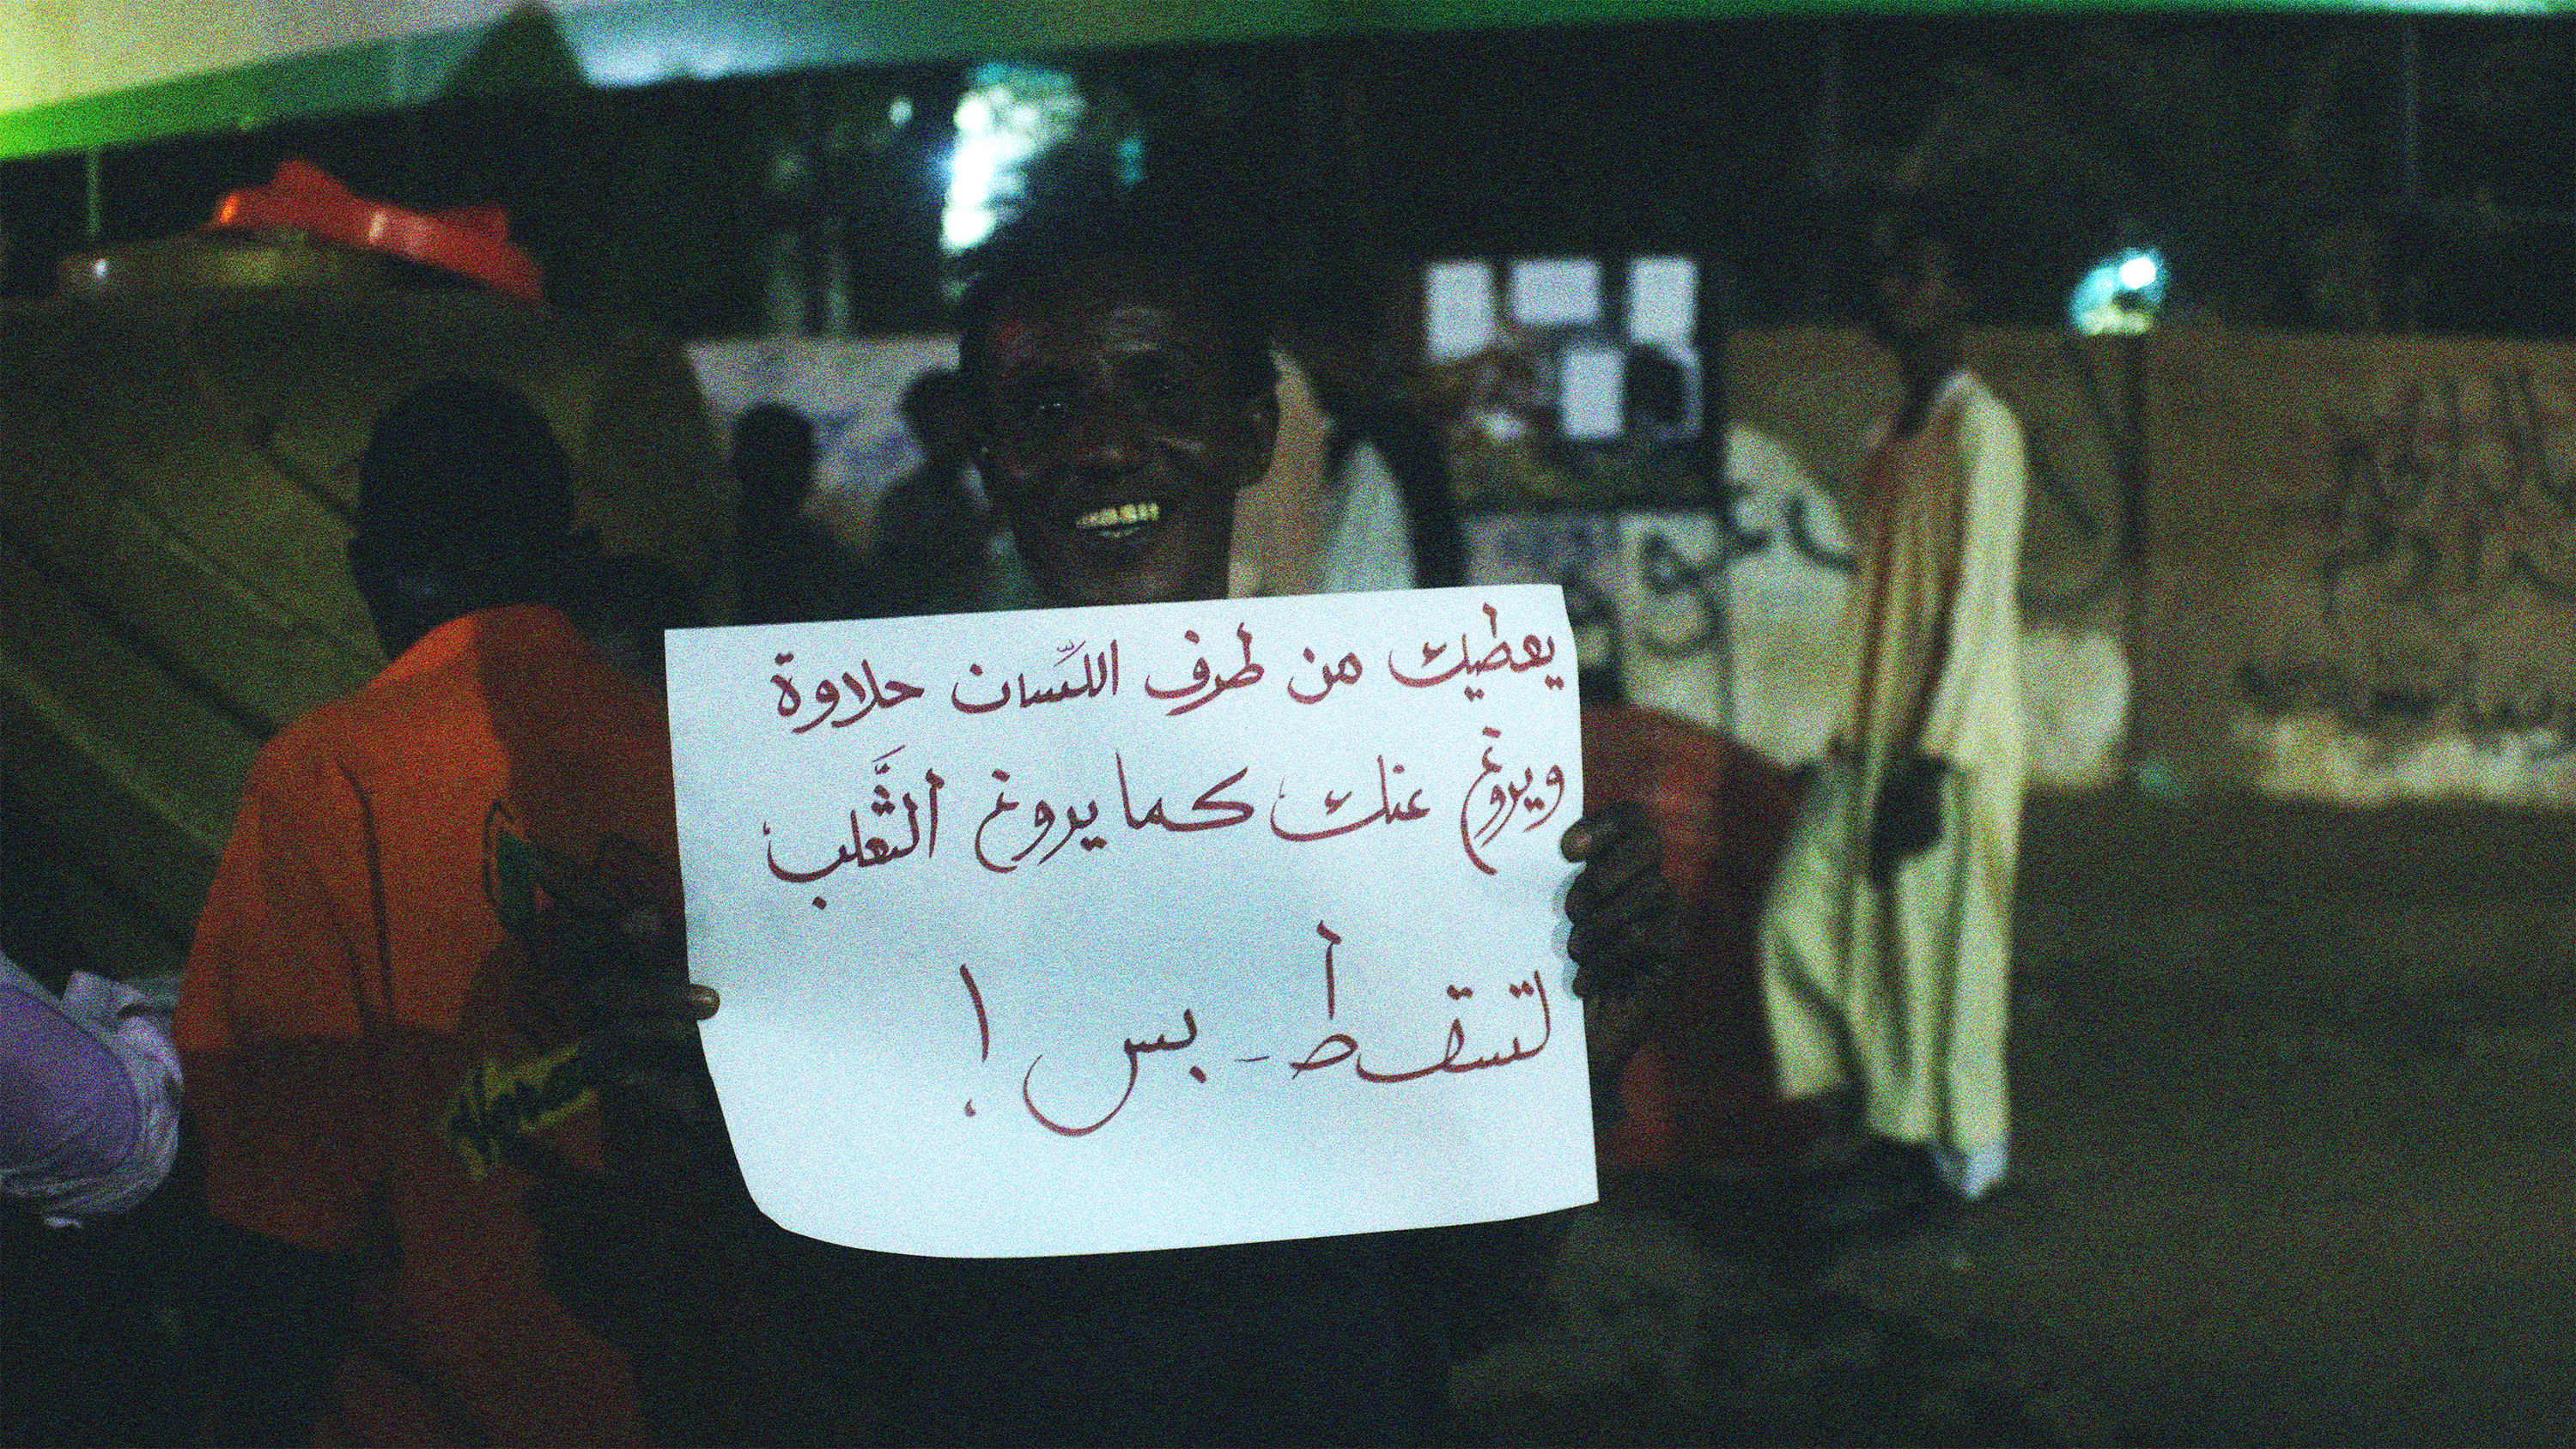 يعطيك من طرف اللّسان حلاوة
ويروغ عنك كما يروغ الثَّعلب
لتسقط - بس !